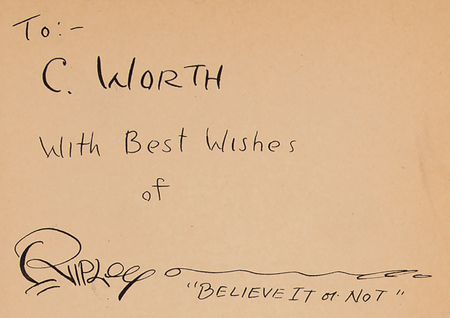 To:-
C. WORTH
With Best Wishes
of
RIPLEY
"BELIEVE IT or NOT"